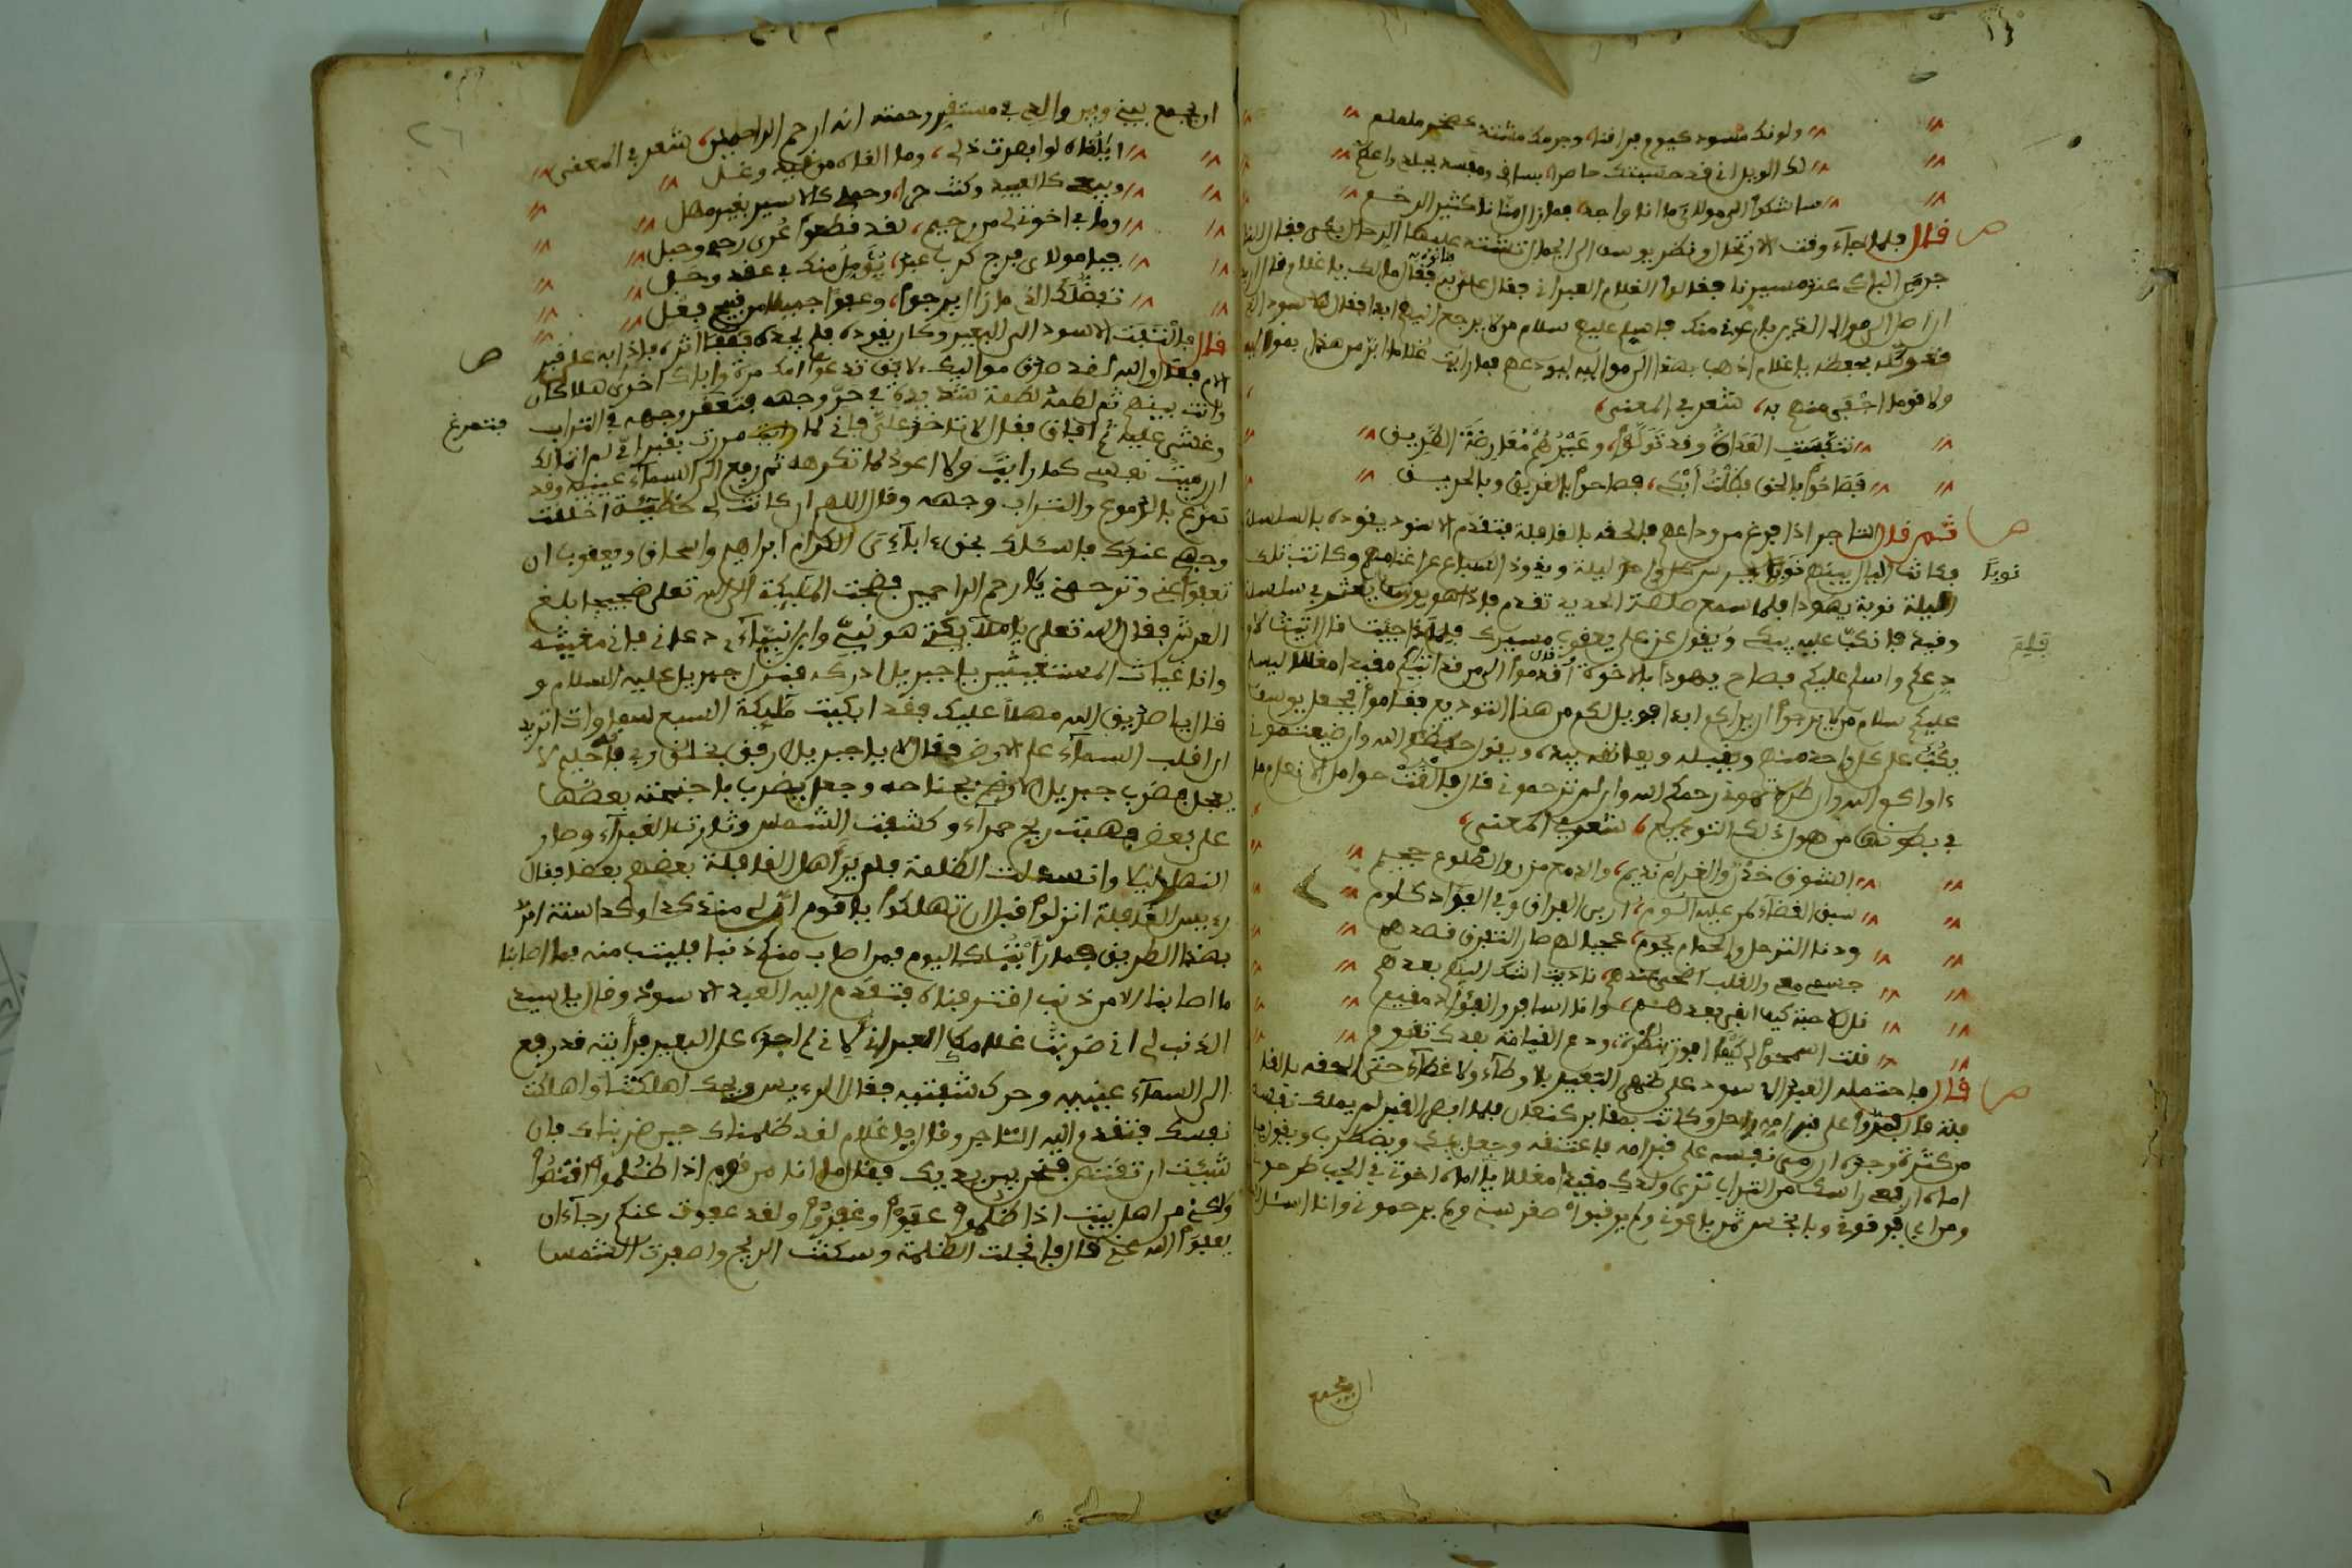 ولونك مسود كيوم فراقنا، وجرمك مشتد كصخر ململم
لك الويل اني قد حسبتك حاصرا
سأشكوا الى مولاي ما انا واجد، فما زال منانا كثير الرخم
قال فلما جاء وقت الارتحال ونظر يوسف الى الجمال تشد عليها الرحال بكى فقال لها
فقال مالك يا غلام قال اريد
فقوكله يحفظه يا غلام اذهب بهذا الى مواليه ليودعهم فما رايت غلاما ابر من هذا بمواليه
ولا قوما اجفى منهم به، شعر في المعنى،
تنكبت الغداة وقد تولوا، وعيرهم معارضة الطريق
فصاحوا بالحق فظلت أبكي، فصاحوا بالغريق وبالحريق
ثم قال التاجر اذا فرغ من وداعهم فالحقه بالقافلة فتقدم الاسود يقوده بالسلسلة
نوبا
الليلة نوبة يهودا فلما سمع صلصلة الحديد تقدم فاذا هو يوسف يعثر في سلسلة
وقيده فانكب عليه يبكي ويقول عز على يعقوب مسيرك فلماذا جيت قال اتيت لاو
دعكم واسلم عليكم فصاح يهودا يالاخوة قوموا الى من قد اتيكم مقيدا مغللا ليسلم
عليكم سلام من لا يرجوا ان يراكم ابدا فويل لكم من هذا التوديع فقاموا فجعل يوسف
يكب على كل واحد منهم ويقبله ويعانقه بيده، ويقول حفظكم الله وان ضيعتموني
واواكم الله وان طردتموني رحمكم الله وان لم ترحموني قال فالقت حوامل الانعام ما
في بطونها من هول ذلك التوديع، شعر في المعنى،
الشوق خدن والغرام نديم، والدمع من بين الضلوع حميم
سبق القضاء فمر عليه اليوم، ارى الفراق وفي الفؤاد كلوم
ودنا الترحل والحمام يحوم، عجبا لهم صار التفرق قصدهم
جسمي معي والقلب اضحى عندهم، ناديت اشكوا اليهم بعدهم
قل لاحبة كيف ابقى بعدهم، وانا المسافر والفؤاد مقيم
قلت اسمحوا لي كيما افوز بنظرة، ودع القيامة بعد ذلك تقوم
قال فاحتمله العبد الاسود على ظهر البعير بلا وطاء ولا غطاء حتى الحقه بالقا
فلة قال فمروا على قبر امه راحل وكانت بمقابر كنعان فلما ابصر القبر لم يملك نفسه
من كثرة وجده ان رمى نفسه على قبر امه فاعتنقه وجعل يبكي ويضطرب ويقول يا
اماه ارفعي راسك من التراب ترى ولدك مقيدا مغللا يا اماه اخوتي في الجب طرحوني
ومن ابي فرقوني وبابخس ثمن باعوني ولم يرقبوا صغر سني ولم يرحموني وانا اسئل الله
ان يجمع
ان يجمع بيني وبين والدي في مستقر رحمته انه ارحم الراحمين، شعر في المعنى
ايا اماه لوابصرت ذلي، وما القاه من قيد وغل
وبيعي كالعبيد وكنت حرا، وحملي كالاسير بغير مهل
وما في اخوتي لي من رحيم، لقد قطعوا عرى رحمي وحبلي
فيا مولاي فرج كرب عبد، يؤمل منك في عقد وحل
تفضلك الذي ما زال يرجوا، وعفوا جميلا من قبيح فعل
قال فالتفت الاسود الى البعير وكان يقوده فلم يجده فقفا اثره فاذا به على قبر
امه فقال والله لقد صدق مواليك، لانك تدعوا امك مرة واباك اخرى هلا كان
وانت بينهم ثم لطمه لطمة شديدة في حر وجهه فتعفر وجهه في التراب
فتمرغ
وغشي عليه ثم افاق فقال لا تاخذ علي فاني لما مررت بقبر امي لم اتمالك
ان رميت نفسي كما رايت ولا اعود لما تكرهه ثم رفع الى السماء عينيه وقد
تمرغ بالدموع والتراب وجهه وقال اللهم ان كانت لي خطيئة اخلقت
وجهي عندك فاسئلك بحق ءابائي الكرام ابراهيم واسحاق ويعقوب ان
تعفوا عني وترحمني يا ارحم الراحمين فضجت الملئيكة الى الله تعلى ضجيجا بلغ
العرش فقال الله تعلى يا ملائيكتي هو نبي وابن انبيائي دعاني فاني مغيثه
وانا غياث المستغيثين يا جبريل ادركه فنزل جبريل عليه السلام و
قال يا صديق الله مهلا عليك فقد ابكيت ملئيكة السبع سموات اتريد
ان اقلب السماء على الارض فقال لا يا جبريل ارفق بخلق ربي فانه حليم لا
يعجل فضرب جبريل الارض بجناحه وجعل يضرب باجنحته بعضها
على بعض فهبت ريح حمراء وكسفت الشمس وثارت الغبراء وصار
النهار ليلا وانسدلت الظلمة فلم ير اهل القافلة بعضهم بعضا فقال
رءيس القافلة انزلوا قبل ان تهلكوا يا قوم ان لي منذ كذا وكذا سنة امر
بهذا الطريق فما رأيت كاليوم فمن اصاب منكم ذنبا فليتب منه فما اصابنا
ما اصابنا الا من ذنب اقترفناه فتقدم اليه العبد الاسود وقال يا سيدي
الذنب لي اني ضربت غلامك العبراني لاني لم اجده على البعير فرأيته قد رفع
الى السماء عينيه وحرك شفتيه فقال الرءيس ويحك اهلكتنا واهلكت
نفسك فتقدم اليه التاجر وقال يا غلام لقد ظلمناك حين ضربناك فان
شئت ان تقتص فنحن بين يديك فقال ما انا من قوم اذا ظلموا اقتصوا
ولكني من اهل بيت اذا ظلموا عفوا وغفروا ولقد عفوت عنكم رجاء ان
يعفوا الله عني قال فانجلت الظلمة وسكنت الريح واصفرت الشمس
٢٦